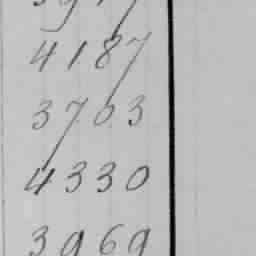 4187
3703
4330
3969